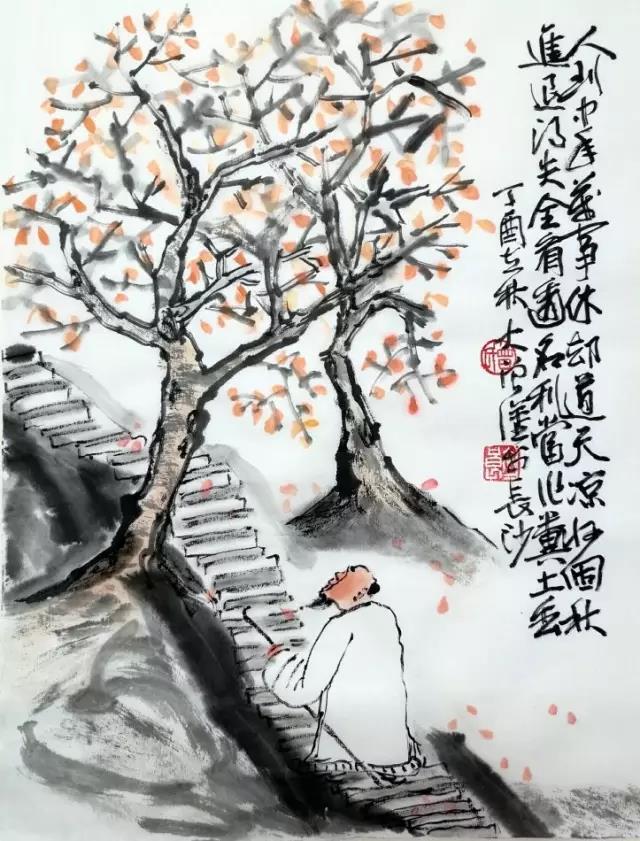 人到中年萬事休却道天凉好個秋
進退得失全看透名利當作糞土丢
丁酉立秋大長沙